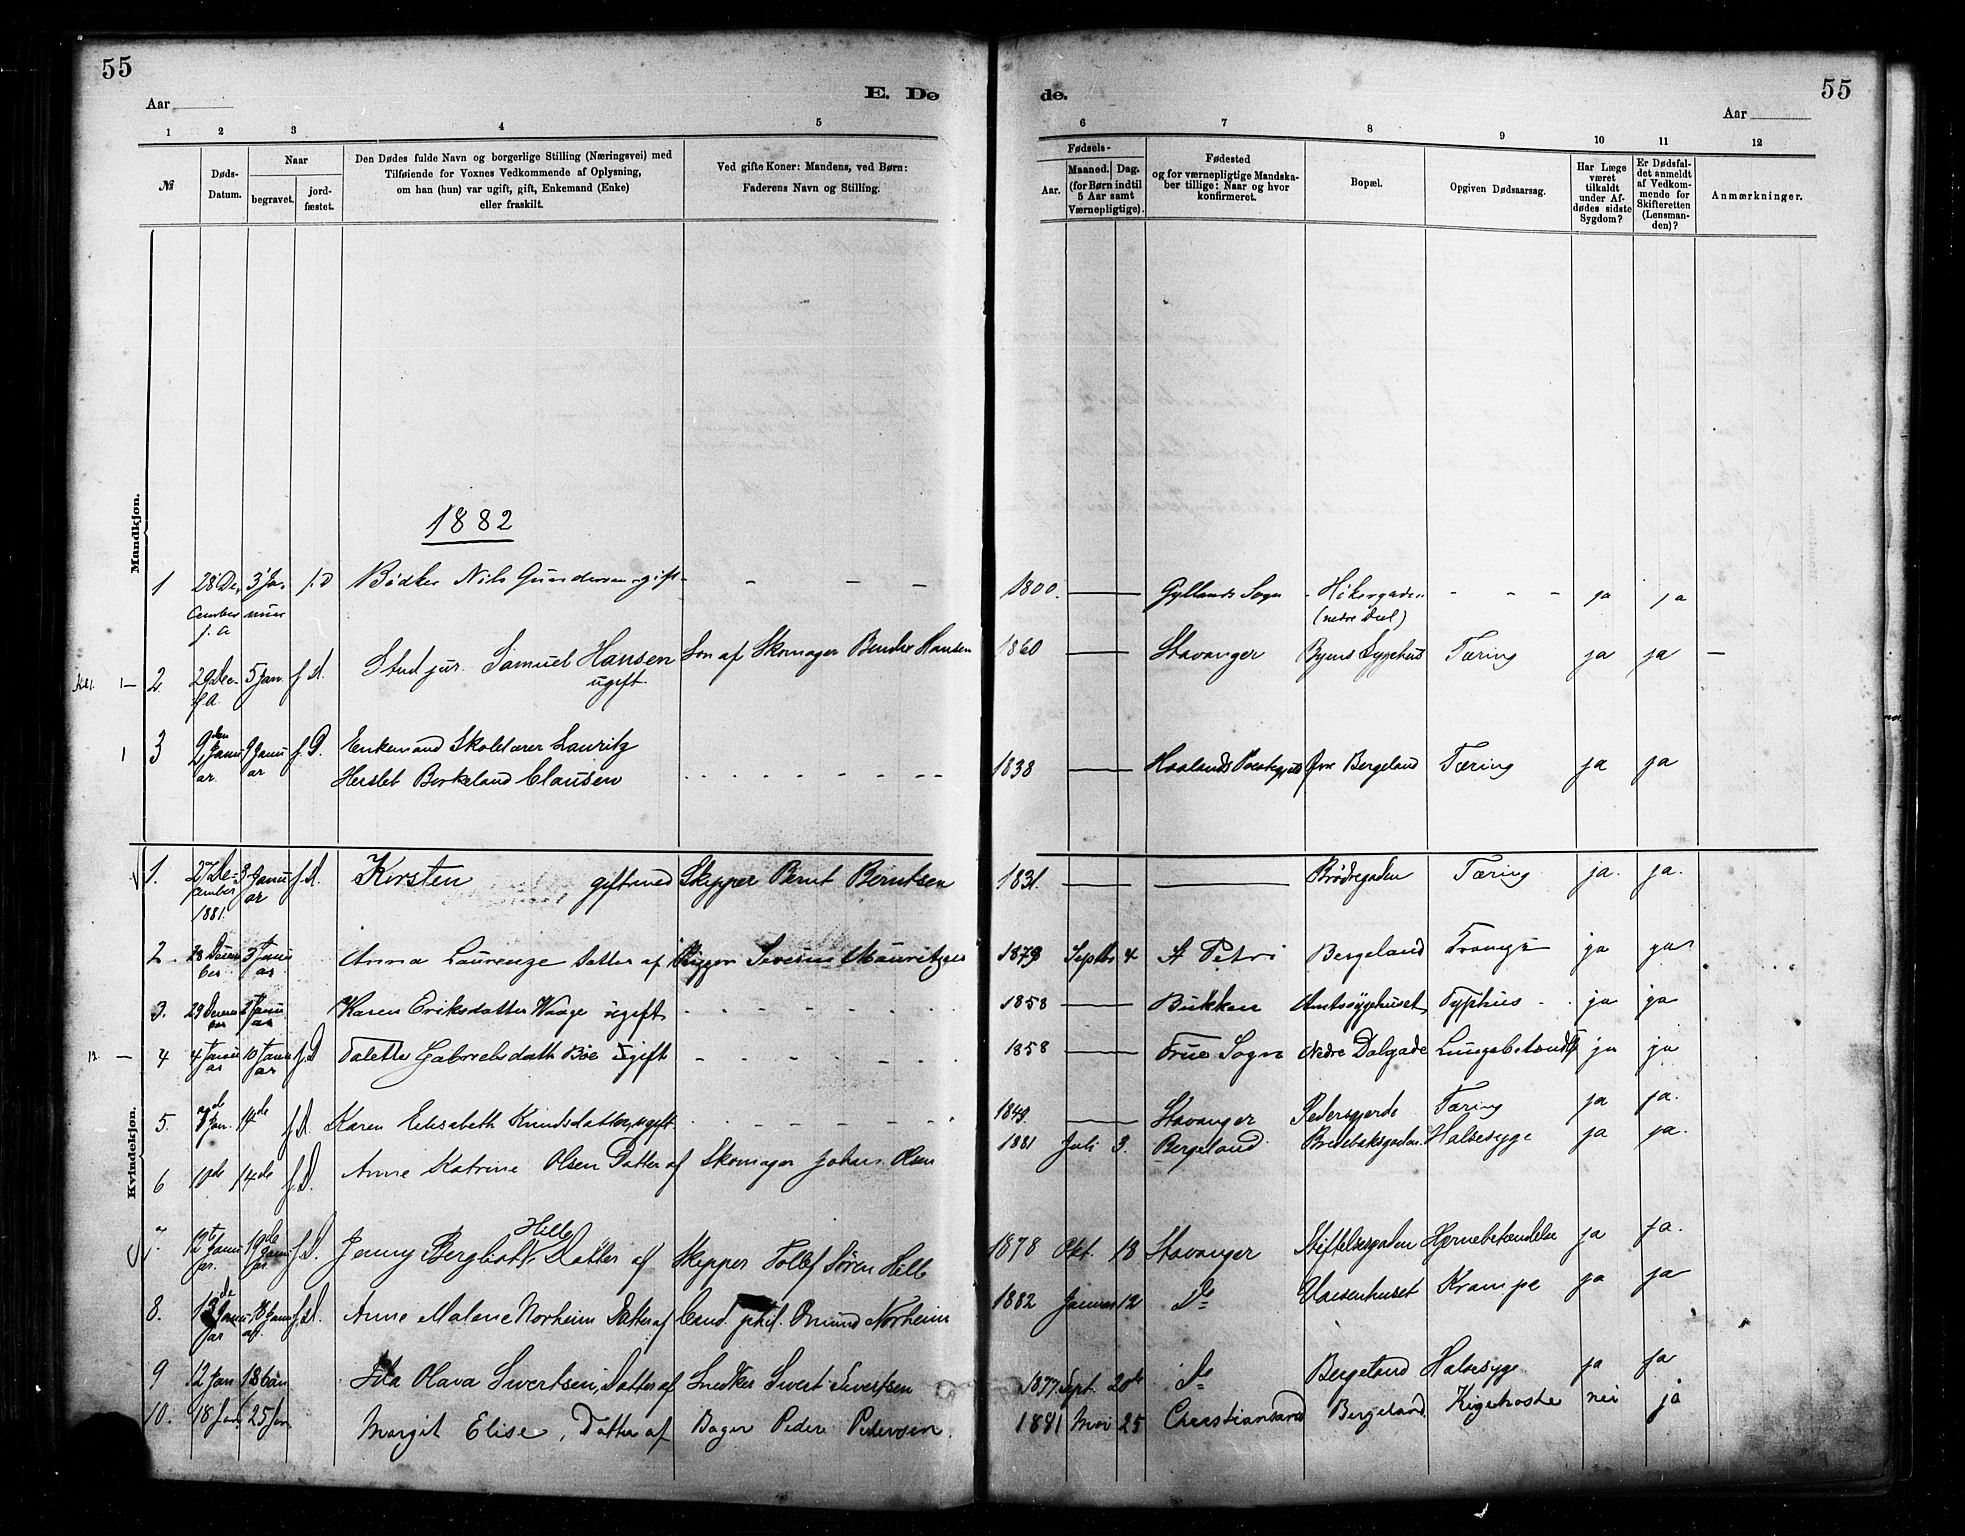 55
55
Aar
E. Dø
de.
Aar
1 2 3 4 5 6 7 8 9 10 11 12
№
Døds-
Datum.
Naar
begravet.
jord-
fæstet.
Den Dødes fulde Navn og borgerlige Stilling (Næringsvei) med
Tilføiende for Voxnes Vedkommende af Oplysning,
om han (hun) var ugift, gift, Enkemand (Enke)
eller fraskilt.
Ved gifte Koner: Mandens, ved Børn:
Faderens Navn og Stilling.
Fødsels-
Aar.
Maaned. Dag.
(for Børn indtil
5 Aar samt
Værnepligtige).
Fødested
og for værnepligtige Mandska-
ber tillige: Naar og hvor
konfirmeret.
Bopæl.
Opgiven Dødsaarsag.
Har Læge
været
tilkaldt
under Af-
dødes sidste
Sygdom?
Er Dødsfal-
det anmeldt
af Vedkom-
mende for
Skifteretten
(Lensman-
den)?
Anmærkninger.
Mandkjøn.
1882
1 28 De- 3 Ja- f. D Bødker Nils Gundersen gift - - - 1800. Gyllands Sogn Hökergaden - - - ja ja
cember nuar (nedre Deel)
f. A
2 29 Dec- 5 Jan. f. D. Stud jur. Samuel Hansen Søn af Skomager Hansen 1860 Stavanger Byens Sygehus Tæring ja ja —
f. A. ugift.
3 9 Janu 9 Janu f. D. Enkemand Skolelærer Lauritz
ar. ar Herslet Berkeland Clausen 1838 Haalands Øvre Bergeland Tæring ja ja
Kvindekjøn.
1. 27 De- 3 Janu f. D. Kirsten gift med Skipper Bernt Berntsen 1831. Brødregaden Tæring ja. ja.
cember ar
1881.
2. 28 Decem 3 Janu Anna Laurenze Datter af Rigger Severin Mauritzsen 1879 Septbr 4 St Petri Bergeland ja ja
ber ar
3. 29 Decem Janu Karen Eriksdatter Waage ugift 1858 Bukken Amtssygehuset Typhus - ja ja
ber ar
12 — 4 4 Janu 10 Janu f. D Talette Gabrielsdatt Bøe Ugift 1858 Frue Sogn Nedre Dalgade Lungebetændels ja ja
ar ar
5. Jan. 14 de f. D. Karen Elisabeth Knudsdatter, ugift 1849. Stavanger Pedersgjerde Tæring ja ja.
6 10 de 14 de f. D. Anne Katrine Olsen Datter af Skomager Johan Olsen 1881 Juli 3. Bergeland. Bredebaksgaden Halsesyge ja ja.
7. 12 Janu 19 Janu f. D. Jenny Bergliot Hille, Datter af Skipper Tollef Søren Hille 1878 Okt. 18 Stavanger Stiftelsesgaden Hjernebetændelse ja ja.
ar. ar
8. 13 Janu 18 Janu f. D. Anne Malene Norheim Datter af Cand. phil. Omund Norheim 1882 Januar 12 Do Vaisenhuset Krampe ja ja
ar ar
9 12 Jan Jan Ida Olava Sivertsen, Datter af Snedker Sivert Sivertsen 1877 Sept. 20 de Do Bergeland Halsesyge ja ja
10. 18 Jan. 25 Jan. Margit Elise, Datter af Bager Peder Pedersen. 1881 Mai 25 Christiansand Bergeland Kighoste nei ja